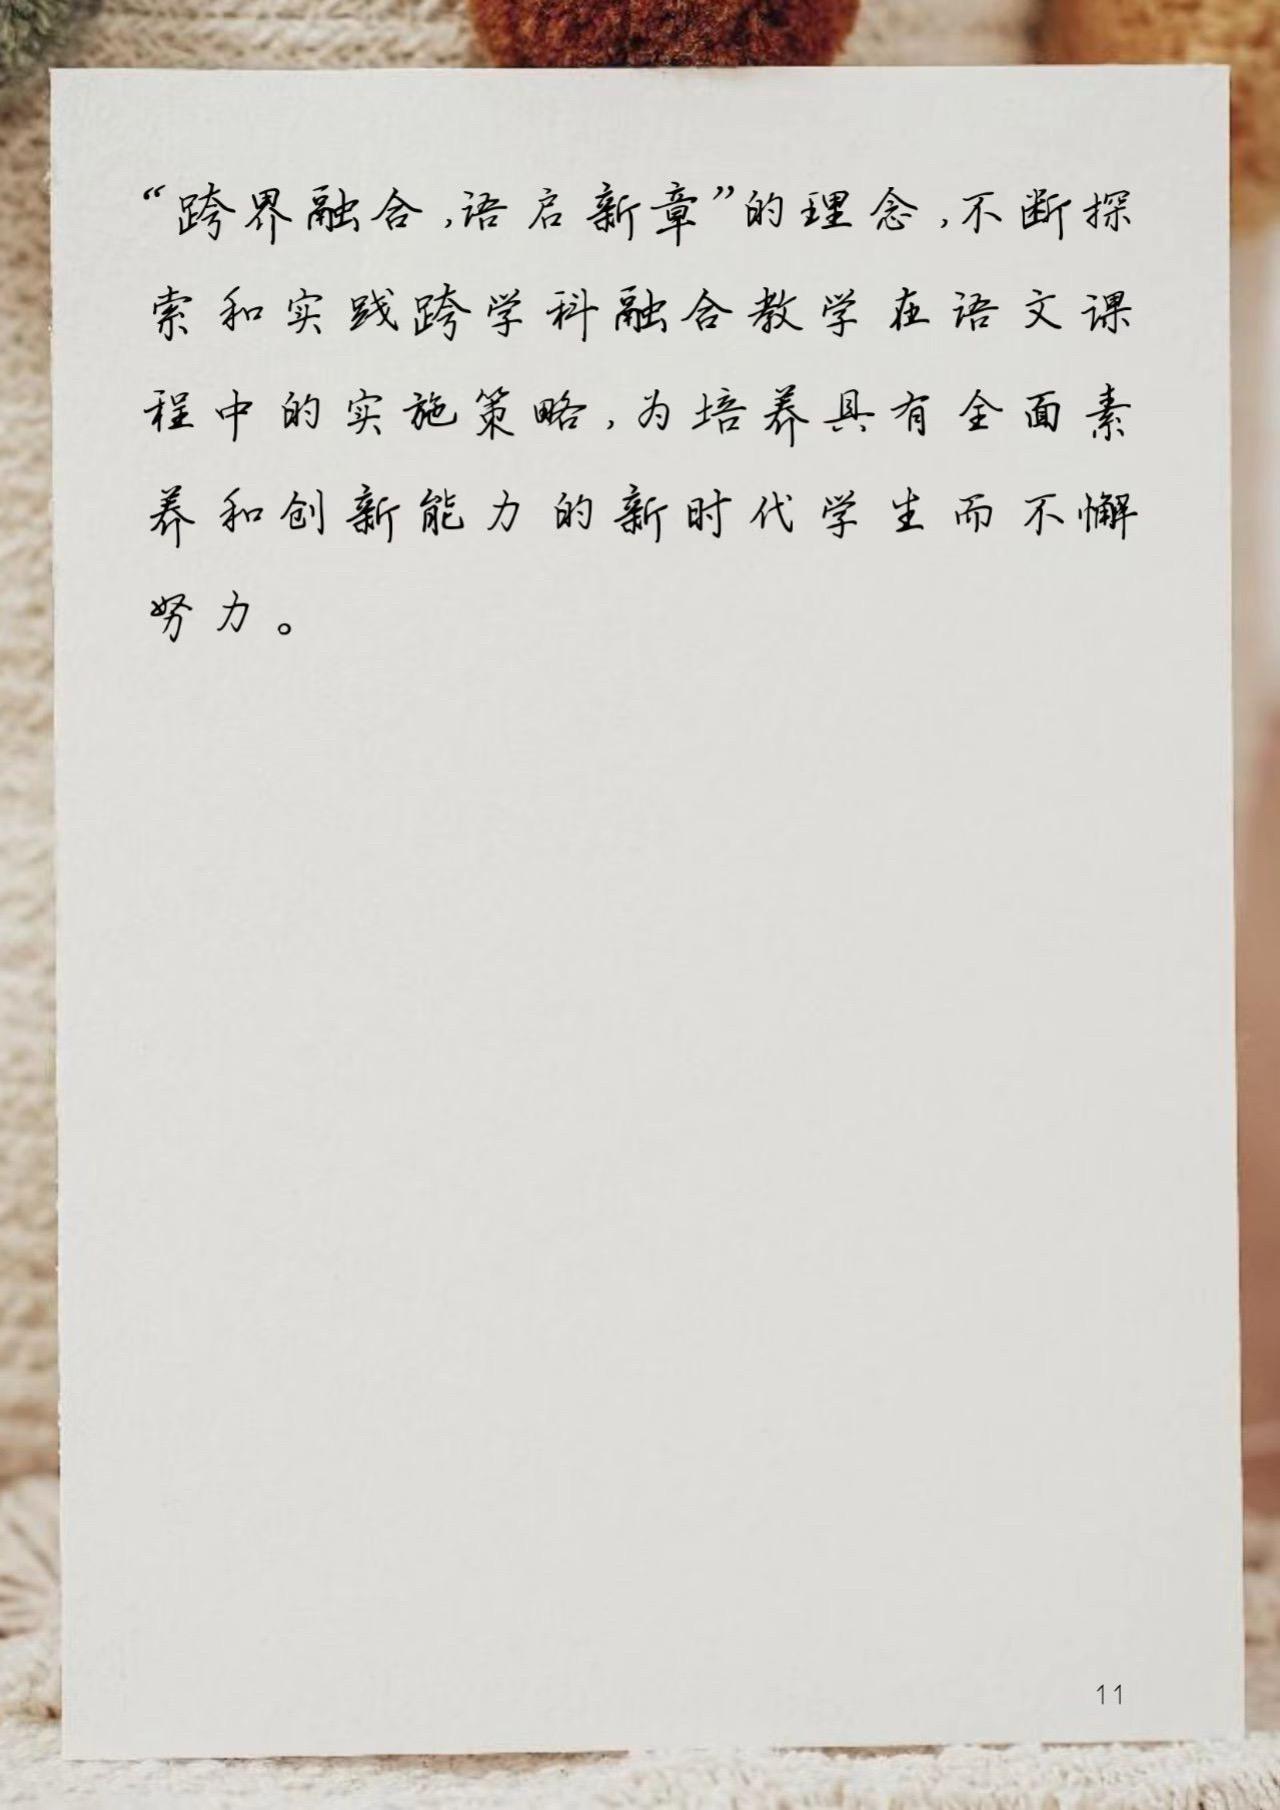 “跨界融合，语启新章”的理念，不断探
索和实践跨学科融合教学在语文课
程中的实施策略，为培养具有全面素
养和创新能力的新时代学生而不懈
努力。
11